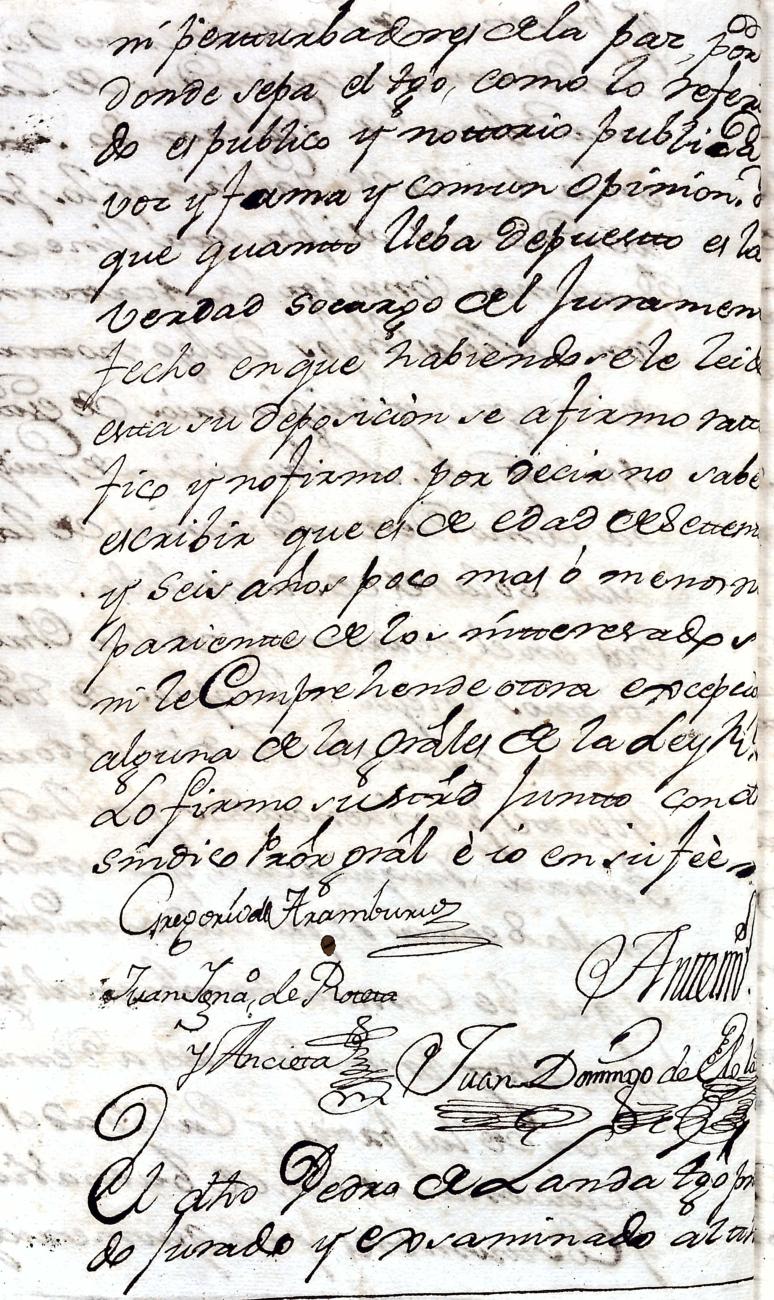 ni perturbadores de la paz, por
donde sepa el tgo, como lo referi
do es publico y nottorio publica
voz y fama y comun opinion.
que quantto lleba depuestto es la
verdad so cargo del juramen
fecho en que habiendosele leid
estta su deposiciòn se afirmo ratt
fico y no firmo por decir no sabe
escribir que es de edad de settem
y seis años poco mas ò menos n
pariente de los ynteresados
ni le Comprehende otra excepcio
alguna de las grales de la Ley R.l
Lo firmo su mrd juntto con el
sindico Prōr grāl è io en su feè
Gregorio de Aramburu
Antemi.
Juan Ignaº de Rotetta
y Ancieta
Juan Domingo de
El dho Pedro de Landa tgo pr
do jurado y exsaminado al